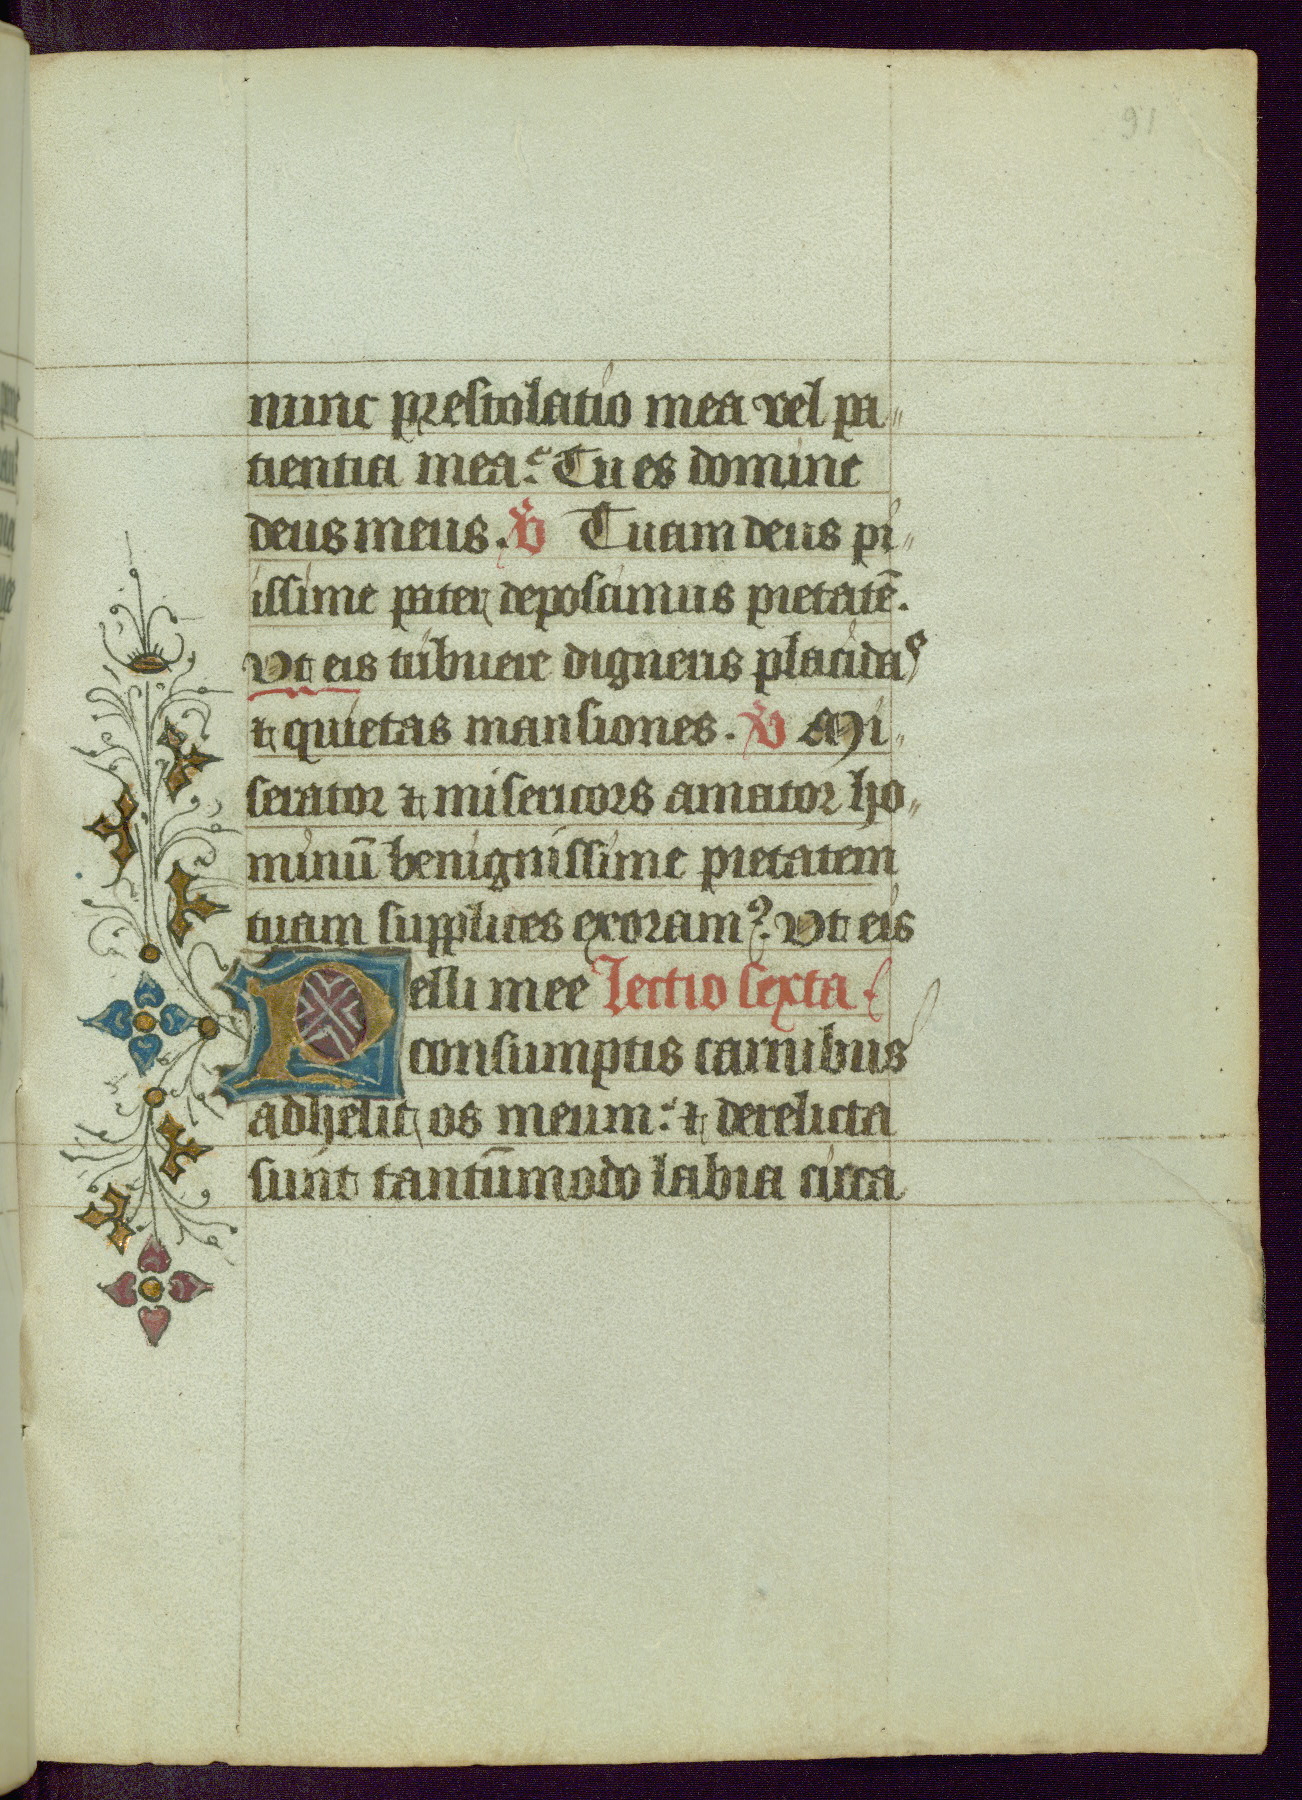 91
nunc prestolatio mea vel pa„
tientia mea: Tu es domine
deus meus. V Tuam deus pi„
issime pater deposcimus pietatē.
Ut eis tribuere digneris placidas
⁊ quietas mansiones. V Mi„
serator ⁊ misericors amator ho„
minū benignissime pietatem
tuam supplices exoramꝰ. Ut eis
Pelli mee lectio sexta.
consumptis carnibus
adhesit os meum: ⁊ derelicta
sunt tantūmodo labia circa